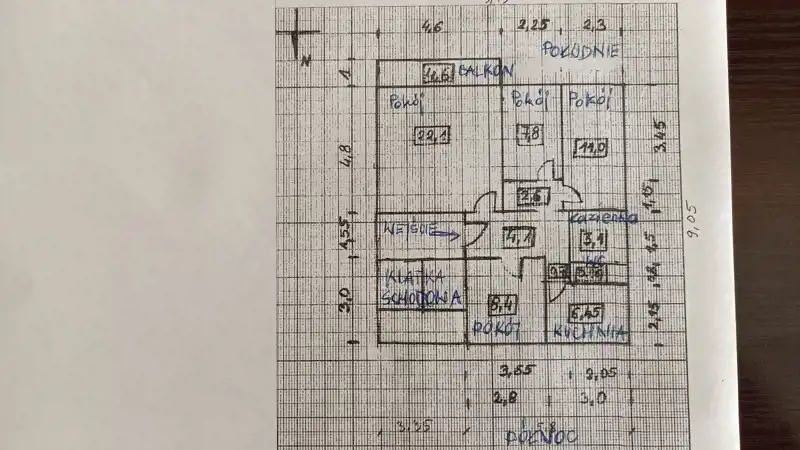 4,6 2,25 2,3
N
POŁUDNIE
1
4,6 BALKON
Pokój Pokój Pokój
22,1 7,8 11,0
4,8
3,45
2,6
1,15
Łazienka
9,05
1,55
WEJŚCIE
4,1
3,1
1,5
WC
KLATKA
SCHODOWA
3,0
8,4
6,45
2,15
POKÓJ
KUCHNIA
3,65 2,05
2,8 3,0
3,35 5,8
PÓŁNOC